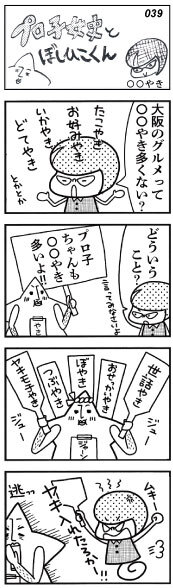 039
プロ子女史と
ぼしひこくん
○○やき
大阪のグルメって
○○やき多くない?
たこやき
お好みやき
いかやき
どてやき
とかとか
どういう
こと?
言ってみなさいよ
プロ子
ちゃんも
○○やき
多いよ!!
やき
世話やき
おせっかいやき
ぼやき
つぶやき
ヤキモチやき
ジュー
ジュー
ムキー!
ヤキ入れたろか!!
逃